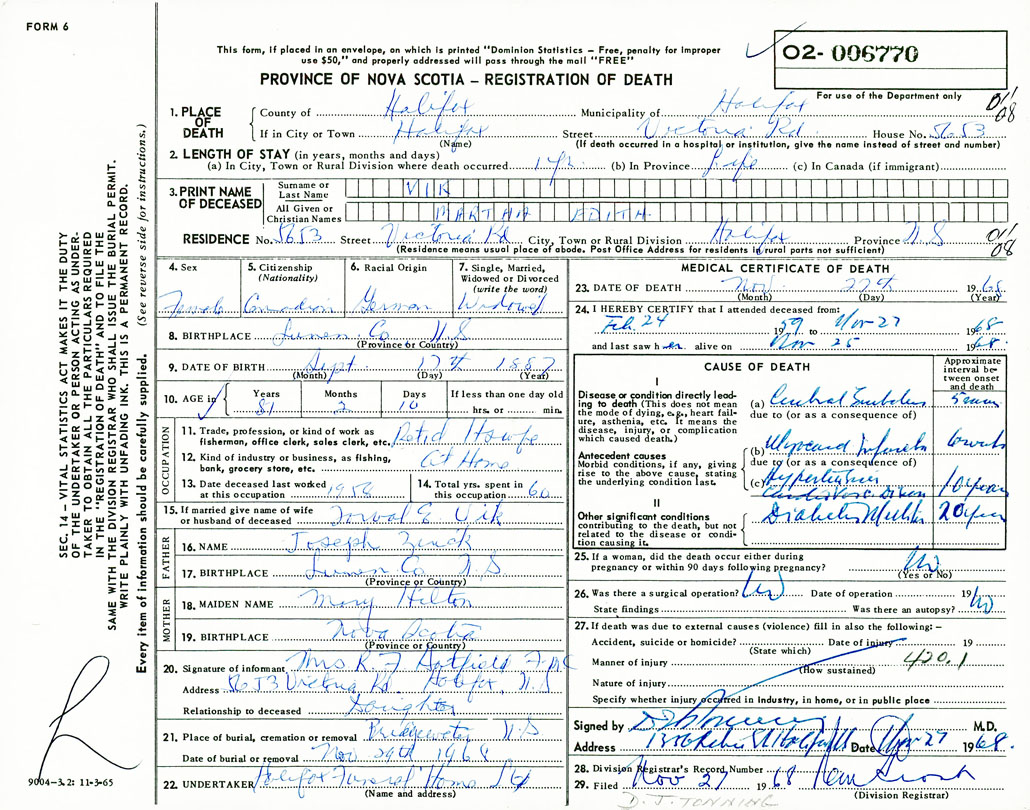 FORM 6
This form, if placed in an envelope, on which is printed "Dominion Statistics – Free, penalty for improper
use $50," and properly addressed will pass through the mail "FREE"
PROVINCE OF NOVA SCOTIA – REGISTRATION OF DEATH
02- 006770
For use of the Department only
1. PLACE OF DEATH
County of Halifax Municipality of Halifax
If in City or Town Halifax Street Victoria Rd. House No. 5653
(Name) (If death occurred in a hospital or institution, give the name instead of street and number)
01/08
2. LENGTH OF STAY (in years, months and days)
(a) In City, Town or Rural Division where death occurred 1 yr. (b) In Province Life (c) In Canada (if immigrant)
3. PRINT NAME OF DECEASED
Surname or Last Name VIK
All Given or Christian Names MARTHA EDITH
RESIDENCE No. 5653 Street Victoria Rd City, Town or Rural Division Halifax Province N.S
(Residence means usual place of abode. Post Office Address for residents in rural parts not sufficient)
01/08
4. Sex
Female
5. Citizenship (Nationality)
Canadian
6. Racial Origin
German
7. Single, Married, Widowed or Divorced (write the word)
Widowed
8. BIRTHPLACE Lunen Co N.S
(Province or Country)
9. DATE OF BIRTH Sept 17th 1887
(Month) (Day) (Year)
10. AGE in Years Months Days If less than one day old
81 2 10 hrs. or min.
OCCUPATION
11. Trade, profession, or kind of work as
fisherman, office clerk, sales clerk, etc. Retid
12. Kind of industry or business, as fishing,
bank, grocery store, etc. At Home
13. Date deceased last worked at this occupation 1958
14. Total yrs. spent in this occupation 60
15. If married give name of wife or husband of deceased E Vik
FATHER
16. NAME Joseph Zinck
17. BIRTHPLACE Lunen Co. N.S
(Province or Country)
MOTHER
18. MAIDEN NAME Mary Hilton
19. BIRTHPLACE Nova Scotia
(Province or Country)
20. Signature of informant Mrs K F Hatfield
Address 5653 Victoria Rd. Halifax, N.S
Relationship to deceased Daughter
21. Place of burial, cremation or removal Bridgewater N.S
Date of burial or removal Nov 29th 1968
22. UNDERTAKER Halifax Funeral Home Ltd
(Name and address)
MEDICAL CERTIFICATE OF DEATH
23. DATE OF DEATH Nov. 27th 1968
(Month) (Day) (Year)
24. I HEREBY CERTIFY that I attended deceased from:
Feb. 24 1959 to Nov 27 1968
and last saw her alive on Nov 25 1968
CAUSE OF DEATH
Approximate interval between onset and death
I
Disease or condition directly leading to death (This does not mean
the mode of dying, e.g., heart failure, asthenia, etc. It means the
disease, injury, or complication
which caused death.)
(a) Cerebral Embolus
due to (or as a consequence of)
Antecedent causes
Morbid conditions, if any, giving
rise to the above cause, stating
the underlying condition last.
(b) Myocard Infarction
due to (or as a consequence of)
(c) Hypertensive 10 years
II
Other significant conditions
contributing to the death, but not
related to the disease or condition causing it.
Diabetes Mellitus 20 years
25. If a woman, did the death occur either during
pregnancy or within 90 days following pregnancy? No
(Yes or No)
26. Was there a surgical operation? No Date of operation 19
State findings Was there an autopsy? No
27. If death was due to external causes (violence) fill in also the following: –
Accident, suicide or homicide? Date of injury 19
(State which)
Manner of injury 420.1
(How sustained)
Nature of injury
Specify whether injury occurred in industry, in home, or in public place
Signed by M.D.
Address Halifax Date Nov 27 1968.
28. Division Registrar's Record Number
29. Filed Nov 27 1968
(Division Registrar)
D. J. TONNING
SEC. 14 – VITAL STATISTICS ACT MAKES IT THE DUTY
OF THE UNDERTAKER OR PERSON ACTING AS UNDER-
TAKER TO OBTAIN ALL THE PARTICULARS REQUIRED
IN THE "REGISTRATION OF DEATH" AND TO FILE THE
SAME WITH THE DIVISION REGISTRAR WHO SHALL ISSUE THE BURIAL PERMIT.
WRITE PLAINLY WITH UNFADING INK. THIS IS A PERMANENT RECORD.
Every item of information should be carefully supplied. (See reverse side for instructions.)
9004-3.2: 11-3-65